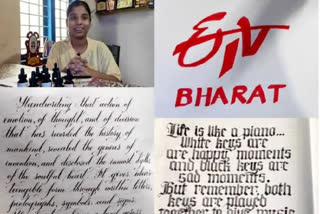 BHARAT
Handwriting that action of
emotion, of thought, and of decision
that has recorded the history of
mankind, revealed the genius of
invention, and disclosed the inmost
of the soulful heart. It gives ideas
tangible form through written letters,
pictographs, symbols, and signs.
Life is like a piano...
White keys are
are happy moments
and black keys are
sad moments.
But remember both
keys are played
together to